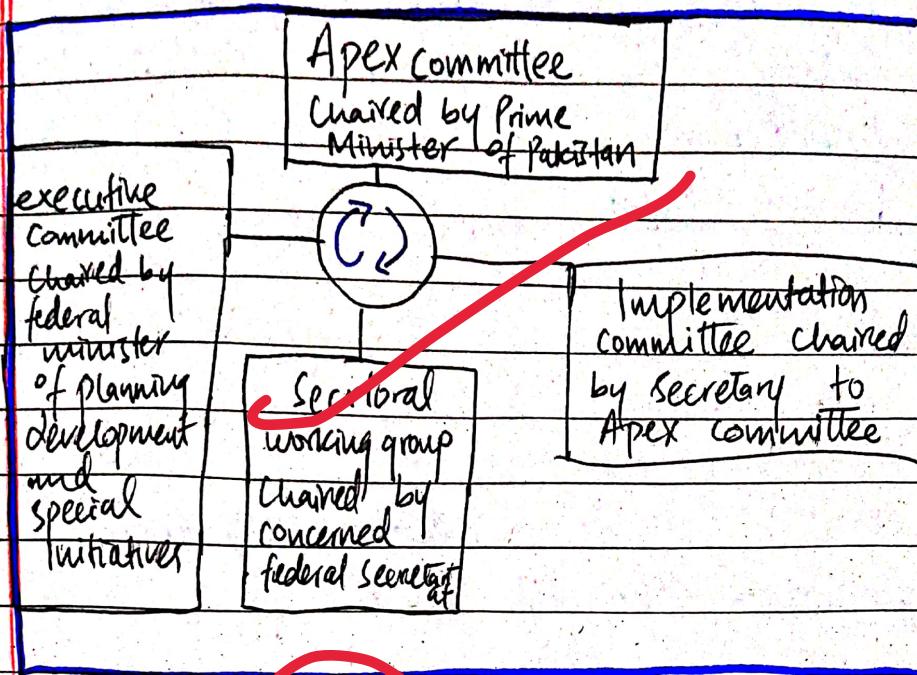 Apex Committee
Chaired by Prime
Minister of Pakistan
executive
committee
chaired by
federal
minister
of planning
development
and
special
Initiatives
Sectoral
working group
Chaired by
concerned
federal secretariat
Implementation
committee chaired
by secretary to
Apex committee